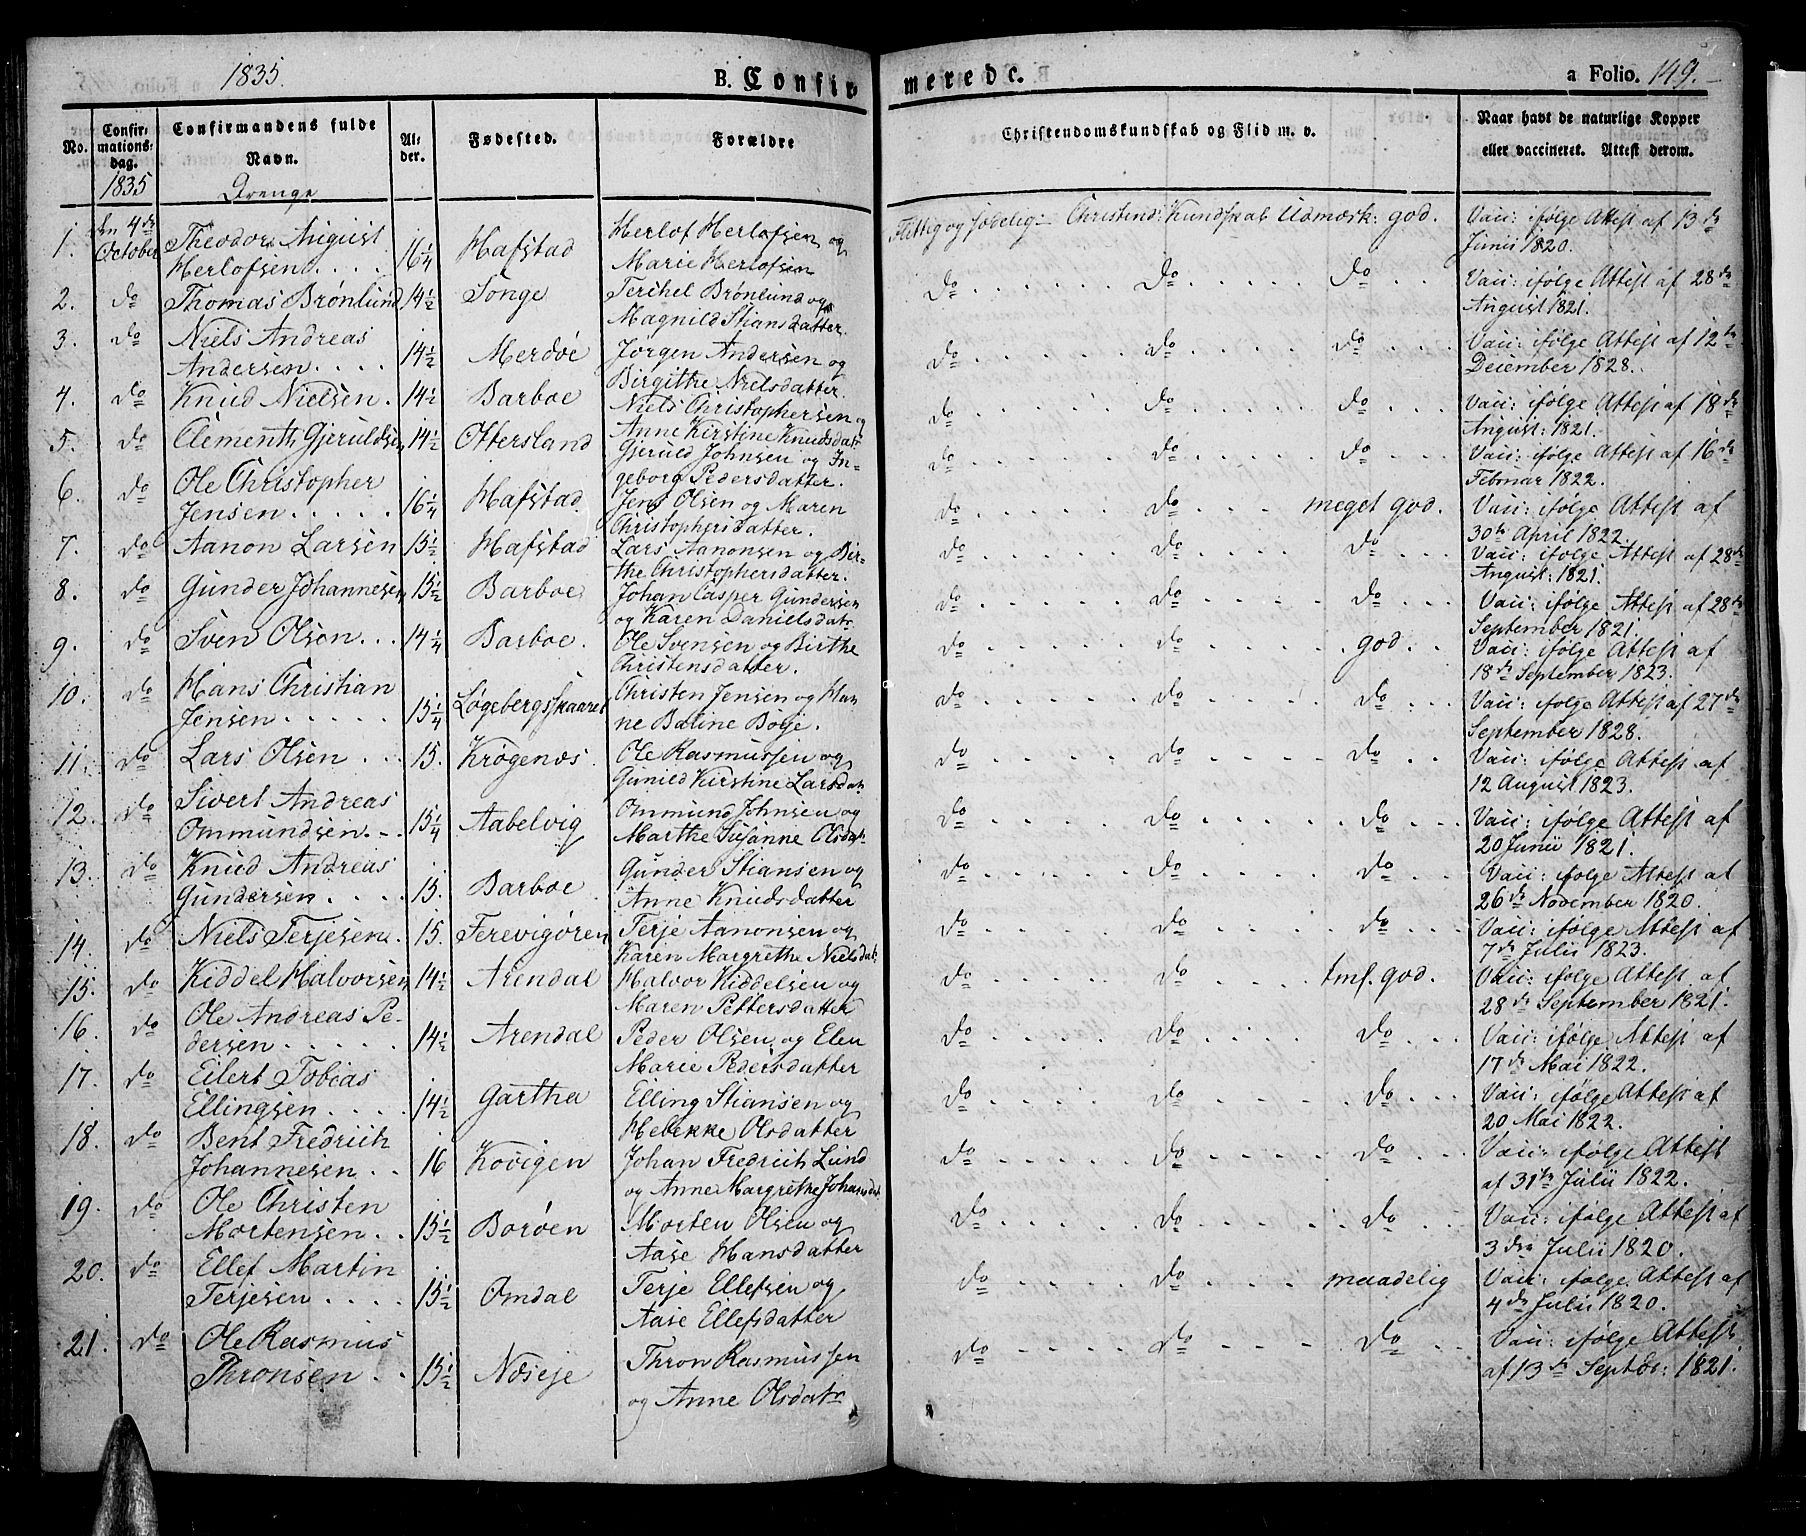 1835. B. Confirmerede. a Folio. 149.
No. Confirmationsdag. Confirmandens fulde Navn. Alder. Fødested. Forældre Christendomskundskab og Flid m. v. Naar havt de naturlige Kopper eller vaccineret. Attest derom.
1835 Drenge
1. den 4de October Theodor August Herlofsen.... 16 1/4 Hafstad Herlof Herlofsen og Marie Herlofsen Flittig og sædelig - Christend: Kundskab Udmærk: god. Vacc: ifølge Attest af 13de Junii 1820.
2. do Thomas Brønlund 14 1/2 Songe Terchel Brønlund og Magnild Stiansdatter. do do do Vacc: ifølge Attest af 28de August 1821.
3. do Niels Andreas Andersen.... 14 1/2 Merdøe Jørgen Andersen og Birgithe Nielsdatter. do do do Vacc: ifølge Attest af 12te December 1828.
4. do Knud Nielsen. 14 1/2 Barboe Niels Christophersen og Anne Kirstine Knudsdatr do do do Vacc: ifølge Attest af 18de August: 1821.
5. do Clementh Gjeruldsen 14 1/2 Ottersland Gjeruld Johnsen og Ingeborg Pedersdatter. do do do Vacc: ifølge Attest af 16de Februar 1822.
6. do Ole Christopher Jensen..... 16 1/4 Hafstad. Jens Olsen og Maren Christophersdatter. do do meget god. Vacc: ifølge Attest af 30te April 1822.
7. do Aanon Larsen 15 1/2 Hafstad Lars Aanonsen og Birthe Christophersdatter. do do do Vacc: ifølge Attest af 28de August: 1821.
8. do Gunder Johannesen 15 1/2 Barboe Johan Casper Gundersen og Karen Danielsdatr. do do do Vacc: ifølge Attest af 28de September 1821.
9. do Sven Olsen... 14 1/4 Barboe. Ole Svensen og Birthe Christensdatter. do do god. Vacc: ifølge Attest af 18de September 1823.
10. do Hans Christian Jensen..... 15 1/4 Løgebergsskaaret Christen Jensen og Hanne Baline Boje. do do do Vacc: ifølge Attest af 27de September 1828.
11. do Lars Olsen... 15. Krøgenæs. Ole Rasmussen og Gunild Kirstine Larsdatr do do do Vacc: ifølge Attest af 12 August 1823.
12. do Sivert Andreas Ommundsen.. 15 1/4 Aabelvig Ommund Johnsen og Marthe Susanne Olsdatr do do do Vacc: ifølge Attest af 20 Junii 1821.
13. do Knud Andreas Gundersen.... 15. Barboe Gunder Stiansen og Anne Knudsdatter do do do Vacc: ifølge Attest af 26de November 1820.
14. do Niels Terjesen. 15. Terje Aanonsen og Karen Margrethe Nielsdatr do do do Vacc: ifølge Attest af 7de Julii 1823.
15. do Kiddel Halvorsen 14 1/2 Arendal Halvor Kiddelsen og Maren Pettersdatter do do tml. god. Vacc: ifølge Attest af 28de September 1821.
16. do Ole Andreas Pedersen..... 14 1/2 Arendal Peder Olsen og Elen Marie Pedersdatter do do do Vacc: ifølge Attest af 17de Mai 1822.
17. do Eilert Tobias Ellingsen.... 14 1/2 Gartha Elling Stiansen og Hebekke Olsdatter do do do Vacc: ifølge Attest af 20 Mai 1822.
18. do Bent Fredrich Johannesen.. 16 Kovigen Johan Fredrich Lund og Anne Margrethe Johansdatr do do do Vacc: ifølge Attest af 31te Julii 1822.
19. do Ole Christen Mortensen.. 15 1/2 Borøen Morten Olsen og Aase Hansdatter do do do Vacc: ifølge Attest af 3die Julii 1820.
20. do Ellef Martin Terjesen.... 15 1/2 Omdal Terje Ellefsen og Aase Ellefsdatter do do maadelig Vacc: ifølge Attest af 4de Julii 1820.
21. do Ole Rasmus Thronsen.. 15 1/2 Næseje Thron Rasmussen og Anne Olsdatr do do do Vacc: ifølge Attest af 13de Septbr: 1821.